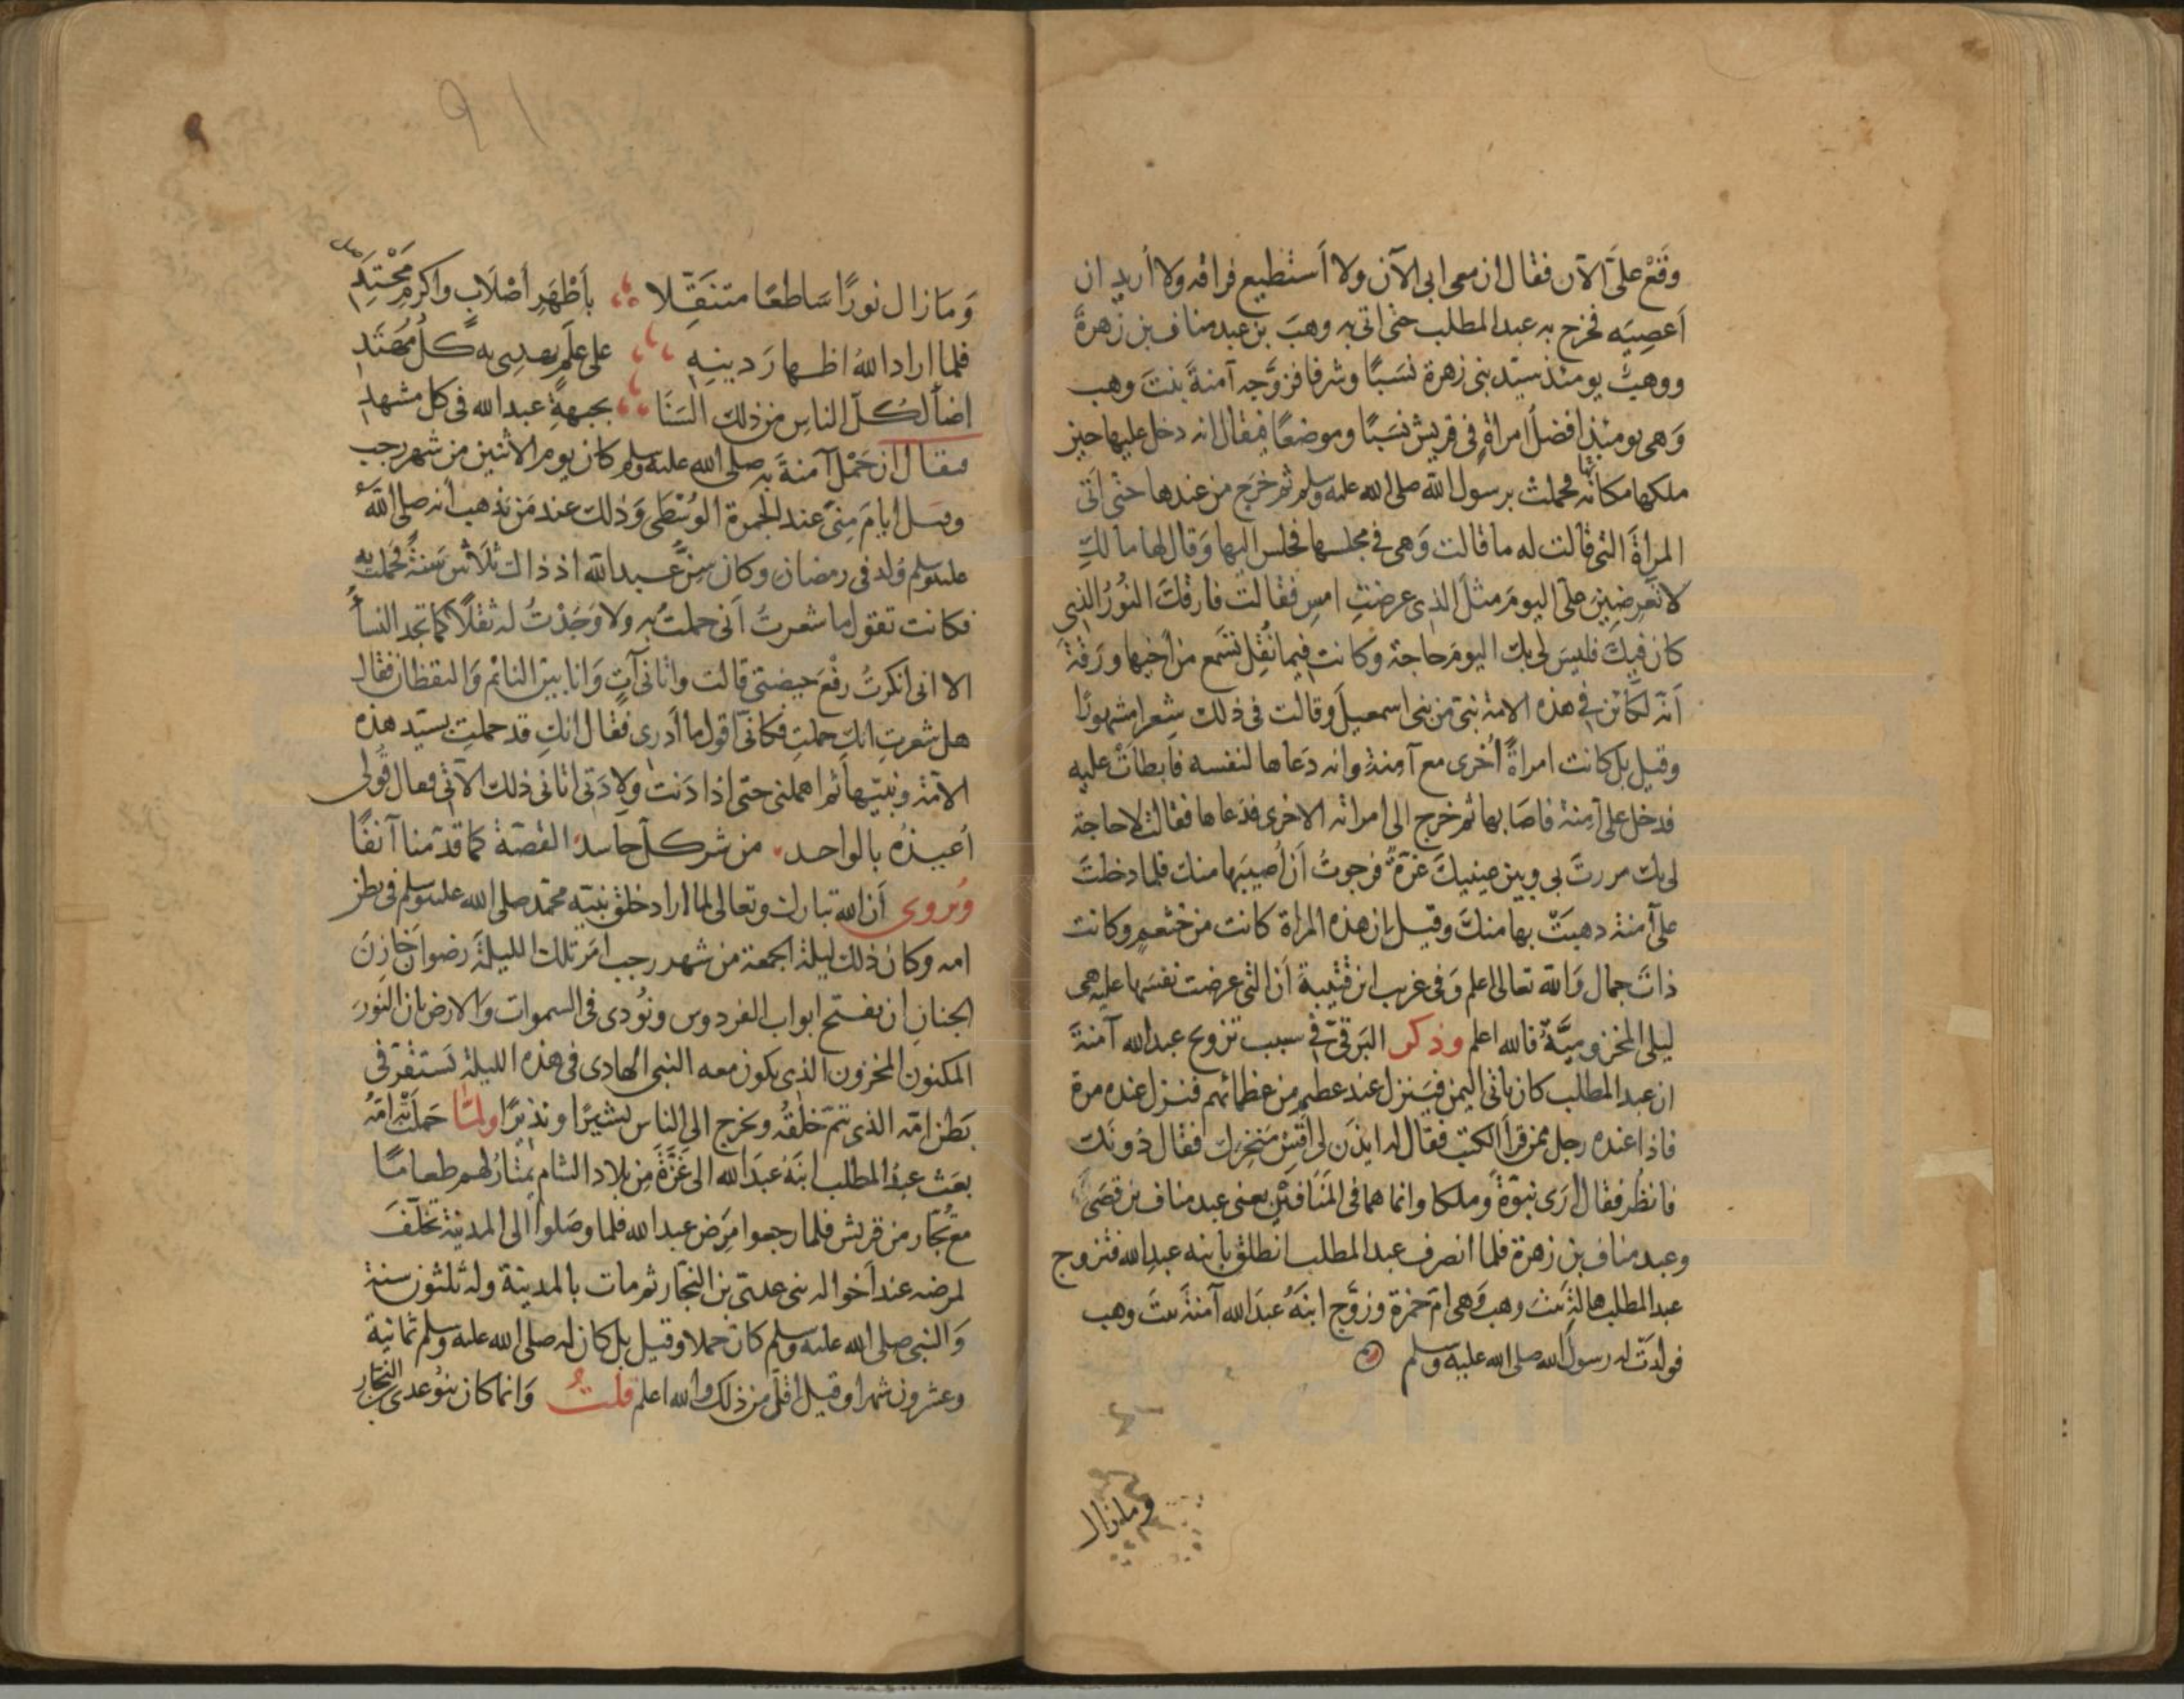 وَقَعْ عَلَيَّ الآن فقال ان معى ابى الآن ولا أستطيع فراقه ولا أريد ان
أعصِيَه فخرج به عبد المطلب حتى اتى به وهبَ بن عبد مناف بن زُهرةَ
ووهبٌ يومئذ سيّد بنى زهرة نَسَبًا وشرفا فزوَّجه آمنةَ بنتَ وهب
وَهى يومئذٍ افضلُ امراةٍ فى قريش نَسَبًا وموضعًا فيقال انه دخل عليها حين
ملكها مكانَه فحملت برسول الله صلى الله عليه وسلم ثم خرج من عندها حتى اتَى
المراةَ التى قالت له ما قالت وَهى فى مجلسها فجلس اليها وَقال لها ما لكِ
لا تعرِضين علَى اليومَ مثلَ الذى عرضتِ امسِ فقالت فارقكَ النُورُ الذى
كان فيكَ فليسَ لى بك اليومَ حاجة وكانت فيما نُقِل تسمَع من أخيها ورَقةَ
أنه لكائن فى هذه الامة نبى من بنى اسمعيل وقالت فى ذلك شِعرا مشهورًا
وقيل بل كانت امراةً أخرى مع آمنة وانه دَعاها لنفسه فابطاتْ عليه
فدخل على آمِنة فاصَابها ثم خرج الى امراته الاخرى فدَعاها فقالت لا حاجة
لى بك مررتَ بى وبين عينيكَ غرّةٌ فرجوتُ أن أُصيبَها منك فلما دخلتَ
على آمنة ذهبَتْ بها منكَ وقيل إن هذه المراة كانت من خثعم وكانت
ذاتَ جمال وَالله تعالى اعلم وَفى غريب ابن قُتَيبةَ أن التى عرضت نفسَها عليه هى
ليلى المخزوميَّةُ فالله اعلم وذكر البَرقىّ فى سبب تزويج عبد الله آمنةَ
ان عبد المطلب كان ياتى اليمن فينزل عند عظيم من عظمائهم فنزل عنده مرة
فاذا عنده رجل ممن قرأ الكتب فقال له ايذن لى اُفتِش مَنخِرك فقال دُونك
فانظُر فقال ارَى نبوّةً وملكا وانما هما فى المَنَافَيْنِ يعنى عبد مناف بن قُصَىّ
وعبد مناف بن زهرة فلما انصرف عبد المطلب انطلق بابنه عبد الله فتزوج
عبد المطلب هالةَ بنتَ وهب وَهى امّ حمزة وزوَّج ابنَهُ عبدَ الله آمنةَ بنتَ وهب
فولدَت له رسولَ الله صلى الله عليه وسلم
وما زال
٩١
وَمَا زال نورًا سَاطعًا متنَقِّلا بأَطْهَرِ أصْلَابٍ واكرمِ مَحْتِدِ
فلما اراد اللهُ اظهارَ دينِهِ على عَلَمٍ يهدِى به كلُّ مُهتَدِ
اضأ لكلّ الناسِ من ذلك السَنَا بجبهةِ عبد الله فى كل مشهد
فيقال ان حَمْلَ آمنةَ به صلى الله عليه وسلم كان يوم الاثنين من شهر رجب
وقيل ايامَ مِنىً عند الجمرة الوُسْطَى وَذلك عند مَن يَذهب أنه صلى الله
عليه وسلم وُلد فى رمضان وكان سِنُّ عبد الله اذ ذاك ثلاثين سَنةً فحملت به
فكانت تقول ما شعرتُ أنى حملتُ به ولا وَجَدْتُ له ثقلًا كما تجد النسأُ
الا انى انكرتُ رفْعَ حيضتى قالت واتانى آتٍ وَانا بينَ النائم وَاليقظان فقال
هل شعرتِ انكِ حملتِ فكانّى اقول ما أدرى فقال انكِ قد حملتِ بسيّد هذه
الامّة ونبيّها ثم امهلنى حتى اذا دَنت وِلادَتى اتانى ذلك الآتى فقال قُولى
أعيذُه بالواحد من شر كلّ حاسد القصّة كما قدّمنا آنفًا
ويُروى أن الله تبارك وتعالى لما اراد خلقَ نبيّه محمّد صلى الله عليه وسلم فى بطن
امه وكان ذلك ليلةَ الجمعة من شهر رجب امَر تلك الليلةَ رضوان خازنَ
الجنانِ ان يفتح ابواب الفردوس ونُودى فى السموات وَالارض بان النورَ
المكنون المخزون الذى يكون معه النبى الهادى فى هذه الليلة يَستقرّ فى
بَطن امّه الذى يتم خلقُه ويخرج الى الناس بشيرًا ونذيرًا ولمّا حَملَتْه امّه
بعَث عبدُ المطلب ابنَهُ عبدَ الله الى غَزَّةَ من بلاد الشام يَمتارُ لهم طعامًا
مع تُجّار من قريش فلما رجعوا مَرِض عبد الله فلما وصَلوا الى المدينة تخلّفَ
لمرضه عند أخواله بنى عدىّ بن النجّار ثم مات بالمدينة وله ثلثون سنة
وَالنبى صلى الله عليه وسلم كان حملا وقيل بل كان له صلى الله عليه وسلم ثمانية
وعشرون شهرا وقيل اقلّ من ذلك والله اعلم قلتُ وَانما كان بنو عدى النجّار